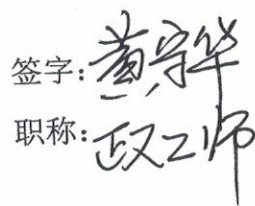 签字:黄守华
职称:政工师